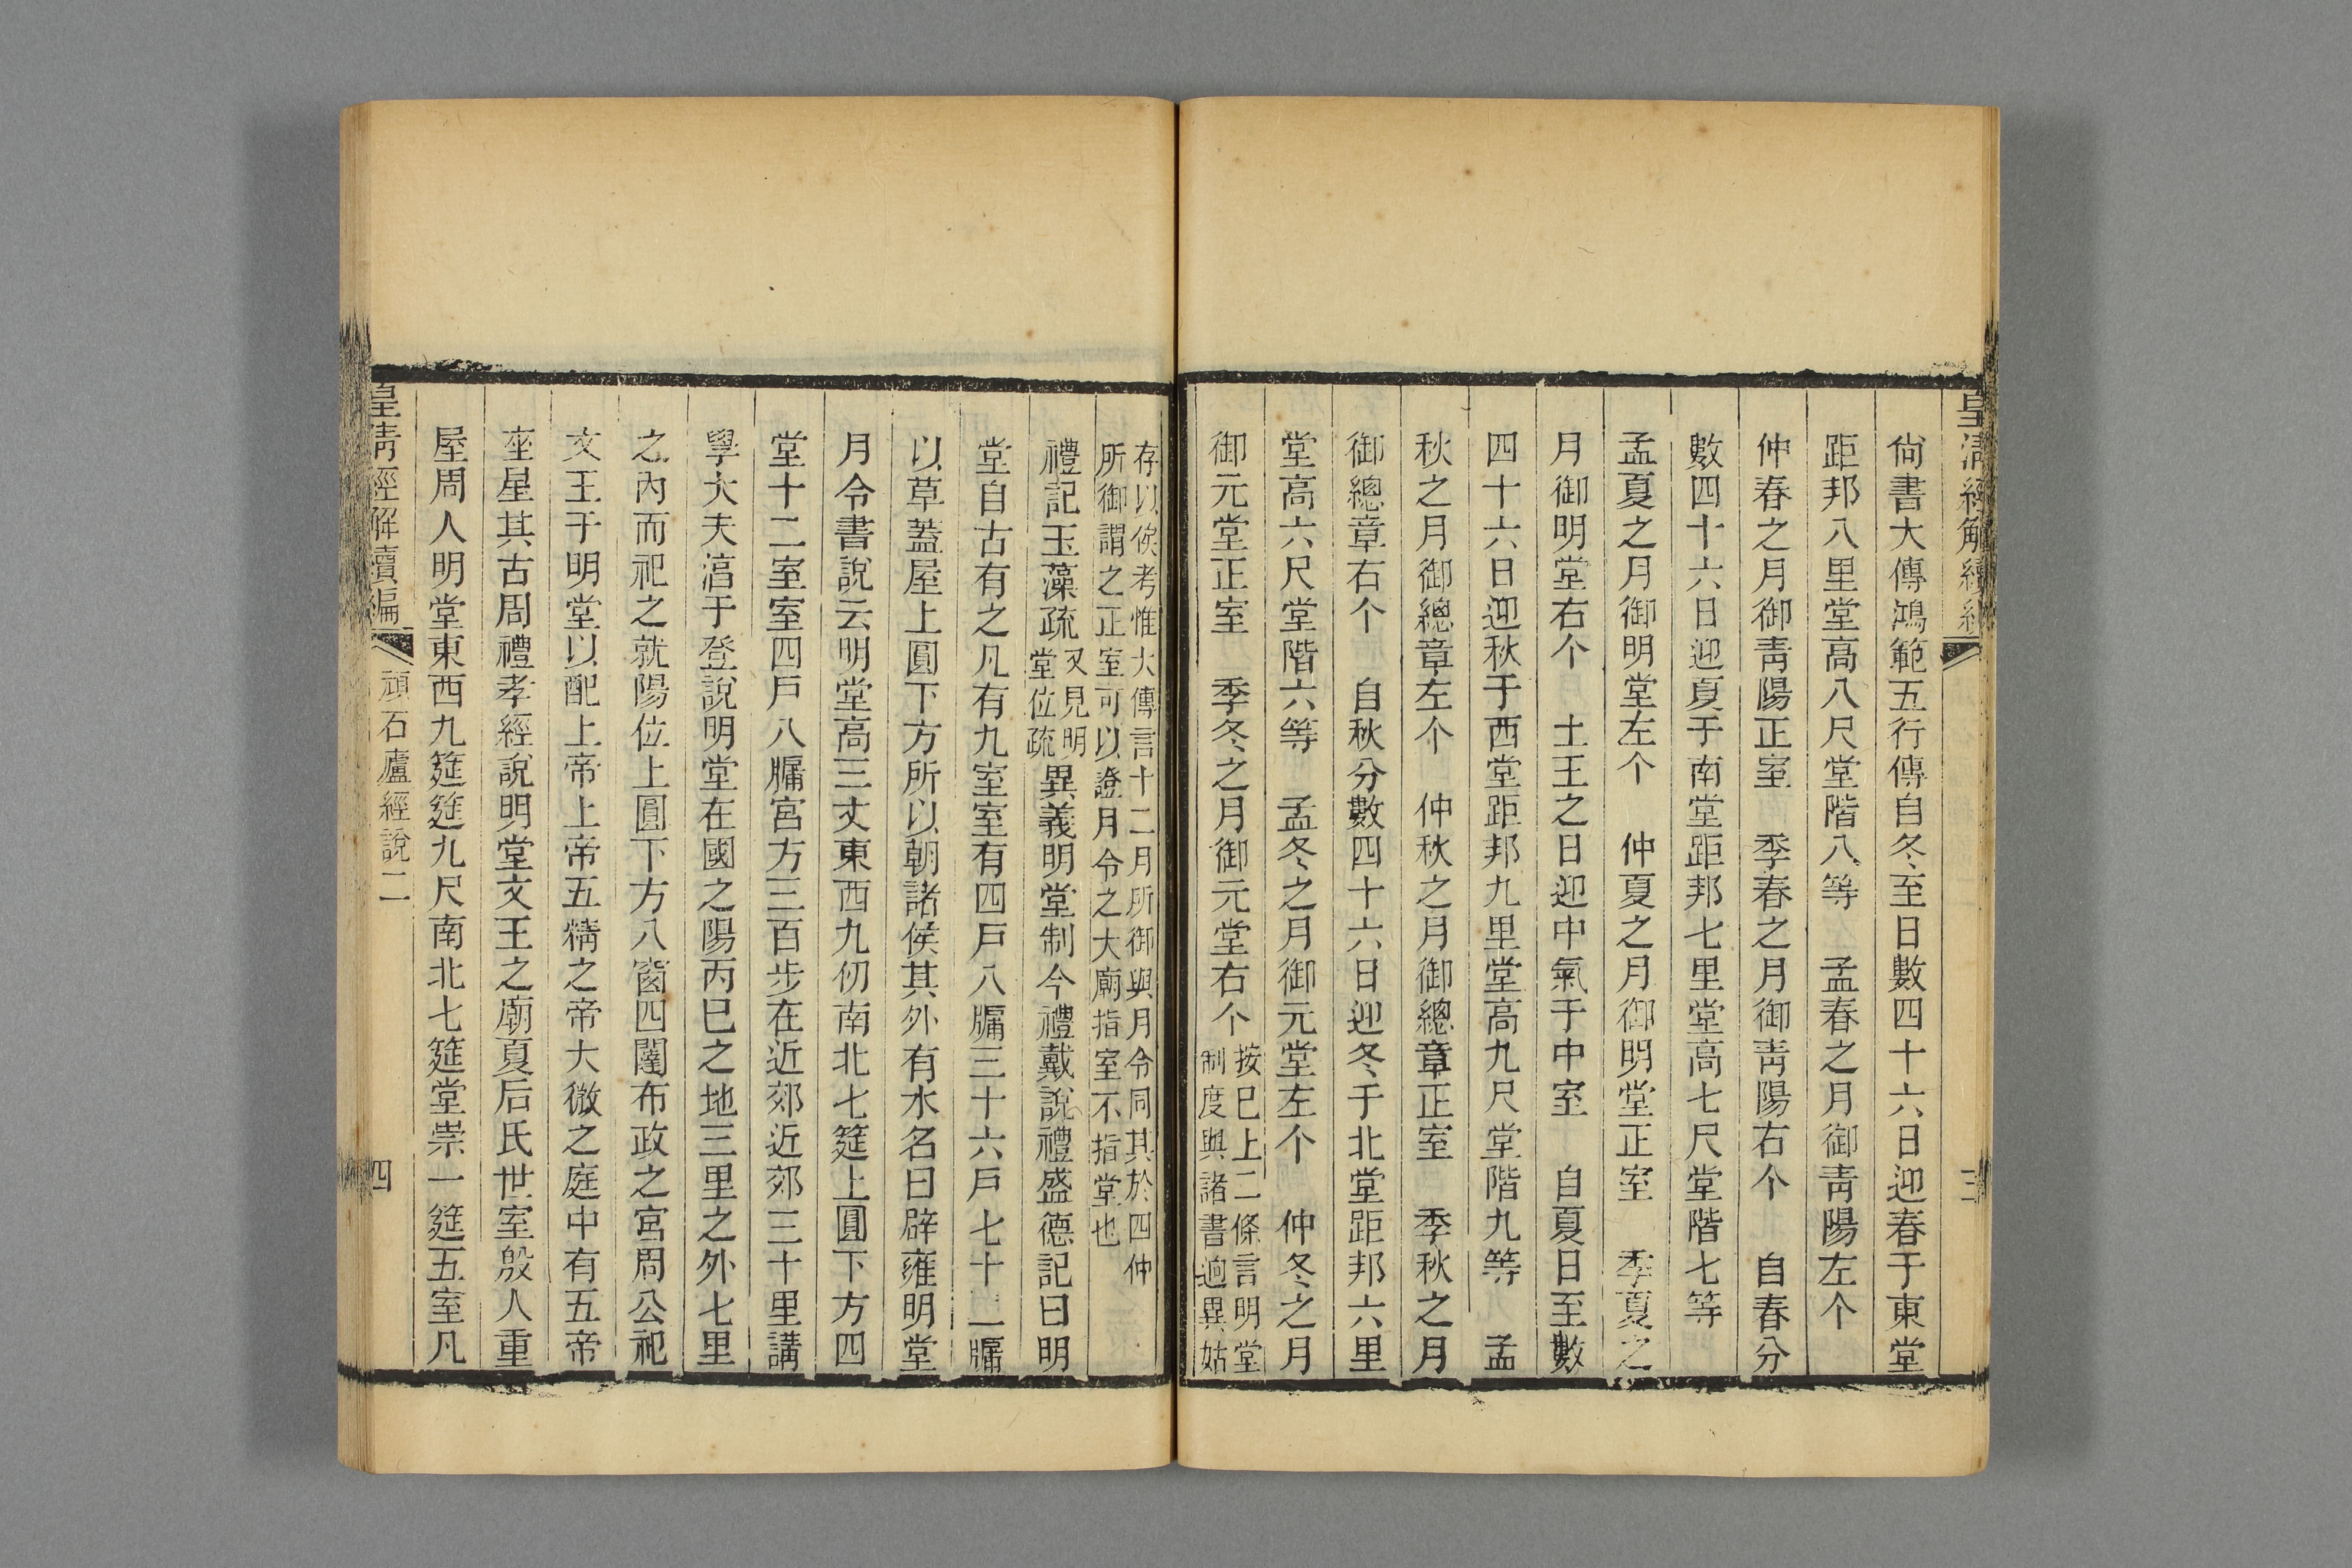 皇清經解續編
三
尙書大傳鴻範五行傳自冬至日數四十六日迎春于東堂
距邦八里堂高八尺堂階八等　孟春之月御靑陽左个
仲春之月御靑陽正室　季春之月御靑陽右个　自春分
數四十六日迎夏于南堂距邦七里堂高七尺堂階七等
孟夏之月御明堂左个　仲夏之月御明堂正室　季夏之
月御明堂右个　土王之日迎中氣于中室　自夏日至數
四十六日迎秋于西堂距邦九里堂高九尺堂階九等　孟
秋之月御總章左个　仲秋之月御總章正室　季秋之月
御總章右个　自秋分數四十六日迎冬于北堂距邦六里
堂高六尺堂階六等　孟冬之月御元堂左个　仲冬之月
御元堂正室　季冬之月御元堂右个按已上二條言明堂制度與諸書逈異姑
存以俟考惟大傳言十二月所御與月令同其於四仲
所御謂之正室可以證月令之大廟指室不指堂也
禮記玉藻疏又見明堂位疏異義明堂制今禮戴說禮盛德記曰明
堂自古有之凡有九室室有四戶八牖三十六戶七十二牖
以草蓋屋上圓下方所以朝諸侯其外有水名曰辟雍明堂
月令書說云明堂高三丈東西九仞南北七筵上圓下方四
堂十二室室四戶八牖宮方三百步在近郊近郊三十里講
學大夫淳于登說明堂在國之陽丙巳之地三里之外七里
之內而祀之就陽位上圓下方八窗四闥布政之宮周公祀
文王于明堂以配上帝上帝五精之帝大微之庭中有五帝
座星其古周禮孝經說明堂文王之廟夏后氏世室殷人重
屋周人明堂東西九筵筵九尺南北七筵堂崇一筵五室凡
皇清經解續編
頑石廬經說二
四